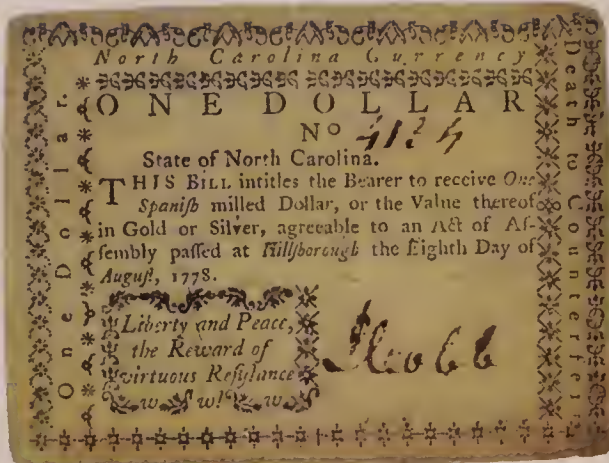 North Carolina Currency
ONE DOLLAR
No 4134
State of North Carolina.
THIS BILL intitles the Bearer to receive One
Spaniſh milled Dollar, or the Value thereof
in Gold or Silver, agreeable to an Act of Aſ-
ſembly paſſed at Hillſborough the Eighth Day of
Auguſt, 1778.
Liberty and Peace,
the Reward of
virtuous Reſiſtance
One Dollar.
Death to Counterfeit